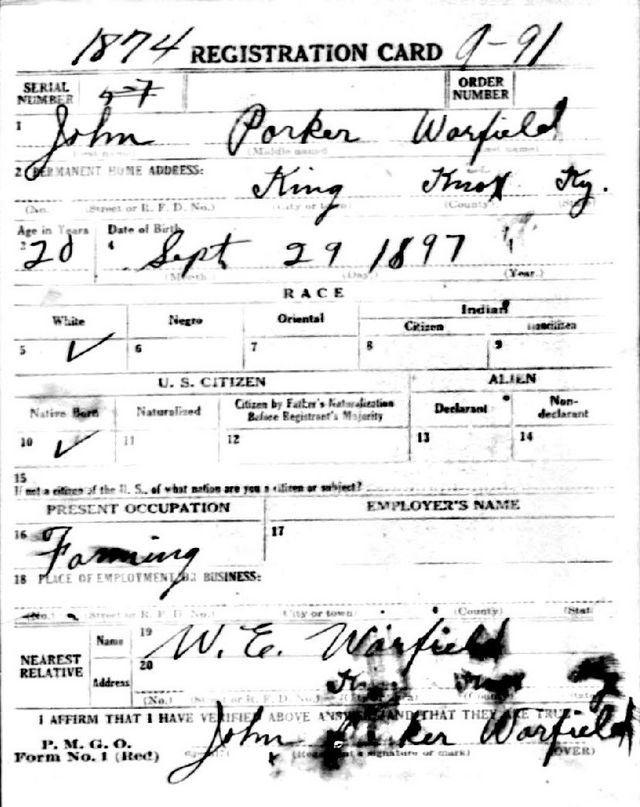 1874 REGISTRATION CARD 9-91
SERIAL NUMBER 57 ORDER NUMBER
1 John Parker Warfield
(Middle name) (Last name)
2 PERMANENT HOME ADDRESS:
King Knox Ky.
(No.) (Street or R. F. D. No.) (City or town) (County) (State)
Age in Years Date of Birth
3 20 4 Sept 29 1897
(Month) (Day) (Year.)
RACE
White Negro Oriental Indian
Citizen Noncitizen
5 ✓ 6 7 8 9
U. S. CITIZEN ALIEN
Native Born Naturalized Citizen by Father's Naturalization Before Registrant's Majority Declarant Non-declarant
10 ✓ 11 12 13 14
15
If not a citizen of the U. S., of what nation are you a citizen or subject?
PRESENT OCCUPATION EMPLOYER'S NAME
16 Farming 17
18 PLACE OF EMPLOYMENT OR BUSINESS:
(No.) (Street or R. F. D. No.) (City or town) (County) (State
NEAREST RELATIVE Name 19 W. E. Warfield
Address 20 King Knox Ky
(No.) (Street or R. F. D. No.)
I AFFIRM THAT I HAVE VERIFIED ABOVE ANSWERS AND THAT THEY ARE TRUE
P. M. G. O.
Form No. 1 (Red) John Parker Warfield
(Registrant's signature or mark) (OVER)